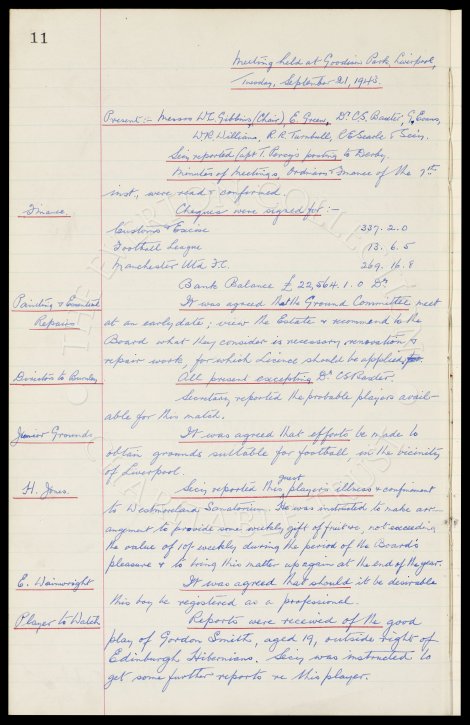 11
Meeting held at Goodison Park, Liverpool,
Tuesday, September 21, 1943.
Present :- Messrs W.C. Gibbins, (Chair), E. Green, Dr. C.S. Baxter, G. Evans,
W.R. Williams, R.R. Turnbull, C.E. Searle & Secy.
Secy reported Capt T. Percy's posting to Derby.
Minutes of Meetings, Ordinary & Finance of the 7th
inst, were read & confirmed.
Finance. Cheques were signed for :-
Customs & Excise 337. 2. 0
Football League 13. 6. 5
Manchester Utd F.C. 269. 16. 8
Bank Balance £ 22,564. 1. 0 Dr
Painting & Essential It was agreed that the Ground Committee meet
Repairs. at an early date, view the Estate & recommend to the
Board what they consider is necessary renovation &
repair work for which Licence should be applied for.
Directors to Burnley All present excepting Dr. C.S. Baxter.
Secretary reported the probable players avail-
able for this match.
Junior Grounds. It was agreed that efforts be made to
obtain grounds suitable for football in the vicinity
of Liverpool.
H. Jones. Secy reported this guest player's illness & confinement
to Westmoreland Sanatorium. He was instructed to make arr-
angement to provide some weekly gift of fruit &c, not exceeding
the value of 10/- weekly during the period of the Board's
pleasure & to bring this matter up again at the end of the year.
E. Wainwright It was agreed that should it be desirable
this boy be registered as a professional.
Player to Watch Reports were received of the good
play of Gordon Smith, aged 19, outside right of
Edinburgh Hibernians. Secy was instructed to
get some further reports re this player.